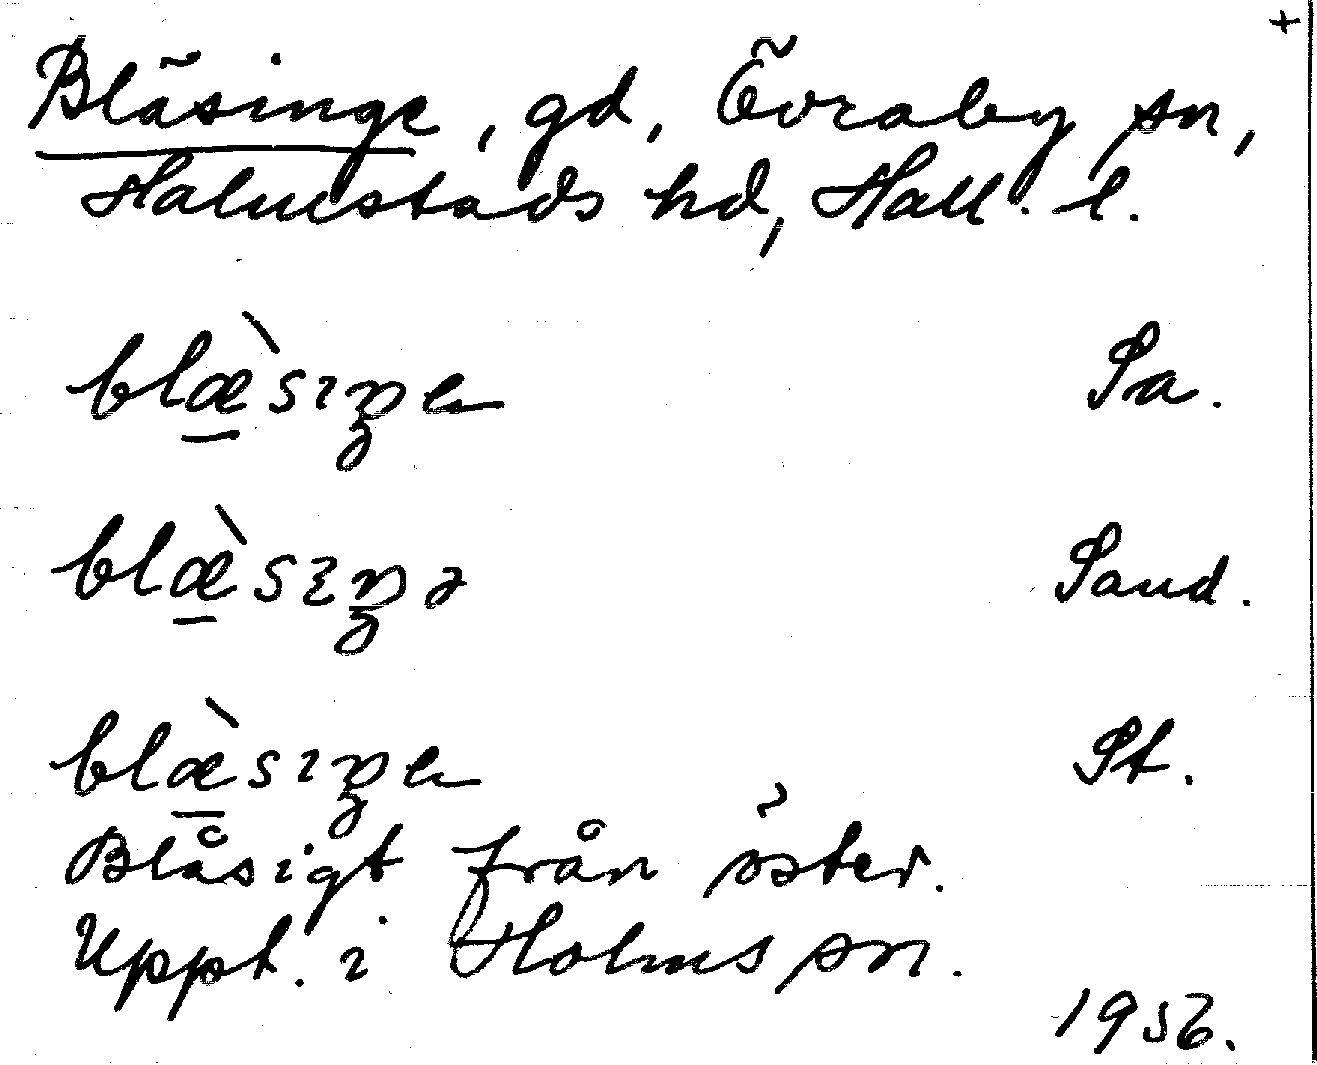 +
Bläsinge, gd, Övraby sn,
Halmstads hd, Hall. l.
blæ̀sıŋe Sa.
blæ̀sıŋə Sand.
blæ̀sıŋe St.
Blåsigt från öster.
Uppt. i Holms sn.
1956.